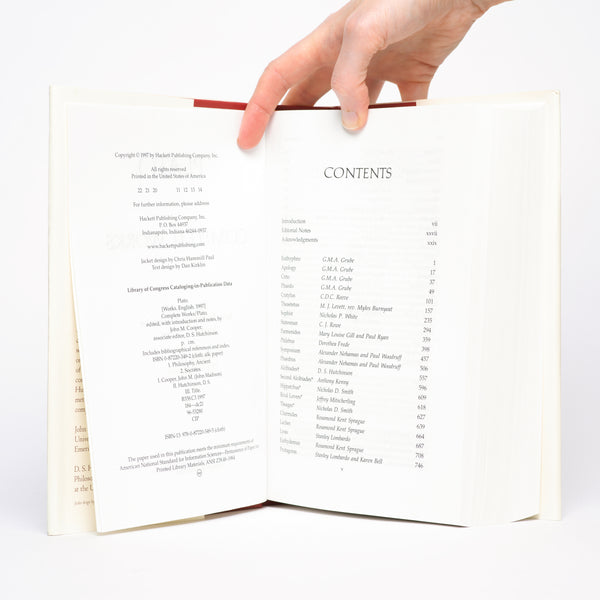 Copyright © 1997 by Hackett Publishing Company, Inc.
All rights reserved
Printed in the United States of America
22 21 20 11 12 13 14
For further information, please address
Hackett Publishing Company, Inc.
P.O. Box 44937
Indianapolis, Indiana 46244-0937
www.hackettpublishing.com
Jacket design by Chris Hammill Paul
Text design by Dan Kirklin
Library of Congress Cataloging-in-Publication Data
Plato
[Works. English. 1997]
Complete Works/Plato
edited, with introduction and notes, by
John M. Cooper,
associate editor, D. S. Hutchinson
p. cm.
Includes bibliographical references and index.
ISBN 0-87220-349-2 (cloth: alk. paper)
1. Philosophy, Ancient
2. Socrates
I. Cooper, John M. (John Madison)
II. Hutchinson, D. S.
III. Title.
B358.C3 1997
184—dc21
96-53280
CIP
ISBN-13: 978-0-87220-349-5 (cloth)
The paper used in this publication meets the minimum requirements of
American National Standard for Information Sciences—Permanence of Paper for
Printed Library Materials, ANSI Z39.48-1984
John
Univer
Emeri
D. S. H
Philoso
at the U
CONTENTS
Introduction vii
Editorial Notes xxvii
Acknowledgments xxix
Euthyphro G.M.A. Grube 1
Apology G.M.A. Grube 17
Crito G.M.A. Grube 37
Phaedo G.M.A. Grube 49
Cratylus C.D.C. Reeve 101
Theaetetus M. J. Levett, rev. Myles Burnyeat 157
Sophist Nicholas P. White 235
Statesman C. J. Rowe 294
Parmenides Mary Louise Gill and Paul Ryan 359
Philebus Dorothea Frede 398
Symposium Alexander Nehamas and Paul Woodruff 457
Phaedrus Alexander Nehamas and Paul Woodruff 506
Alcibiades* D. S. Hutchinson 557
Second Alcibiades* Anthony Kenny 596
Hipparchus* Nicholas D. Smith 609
Rival Lovers* Jeffrey Mitscherling 618
Theages* Nicholas D. Smith 627
Charmides Rosamond Kent Sprague 639
Laches Rosamond Kent Sprague 664
Lysis Stanley Lombardo 687
Euthydemus Rosamond Kent Sprague 708
Protagoras Stanley Lombardo and Karen Bell 746
v